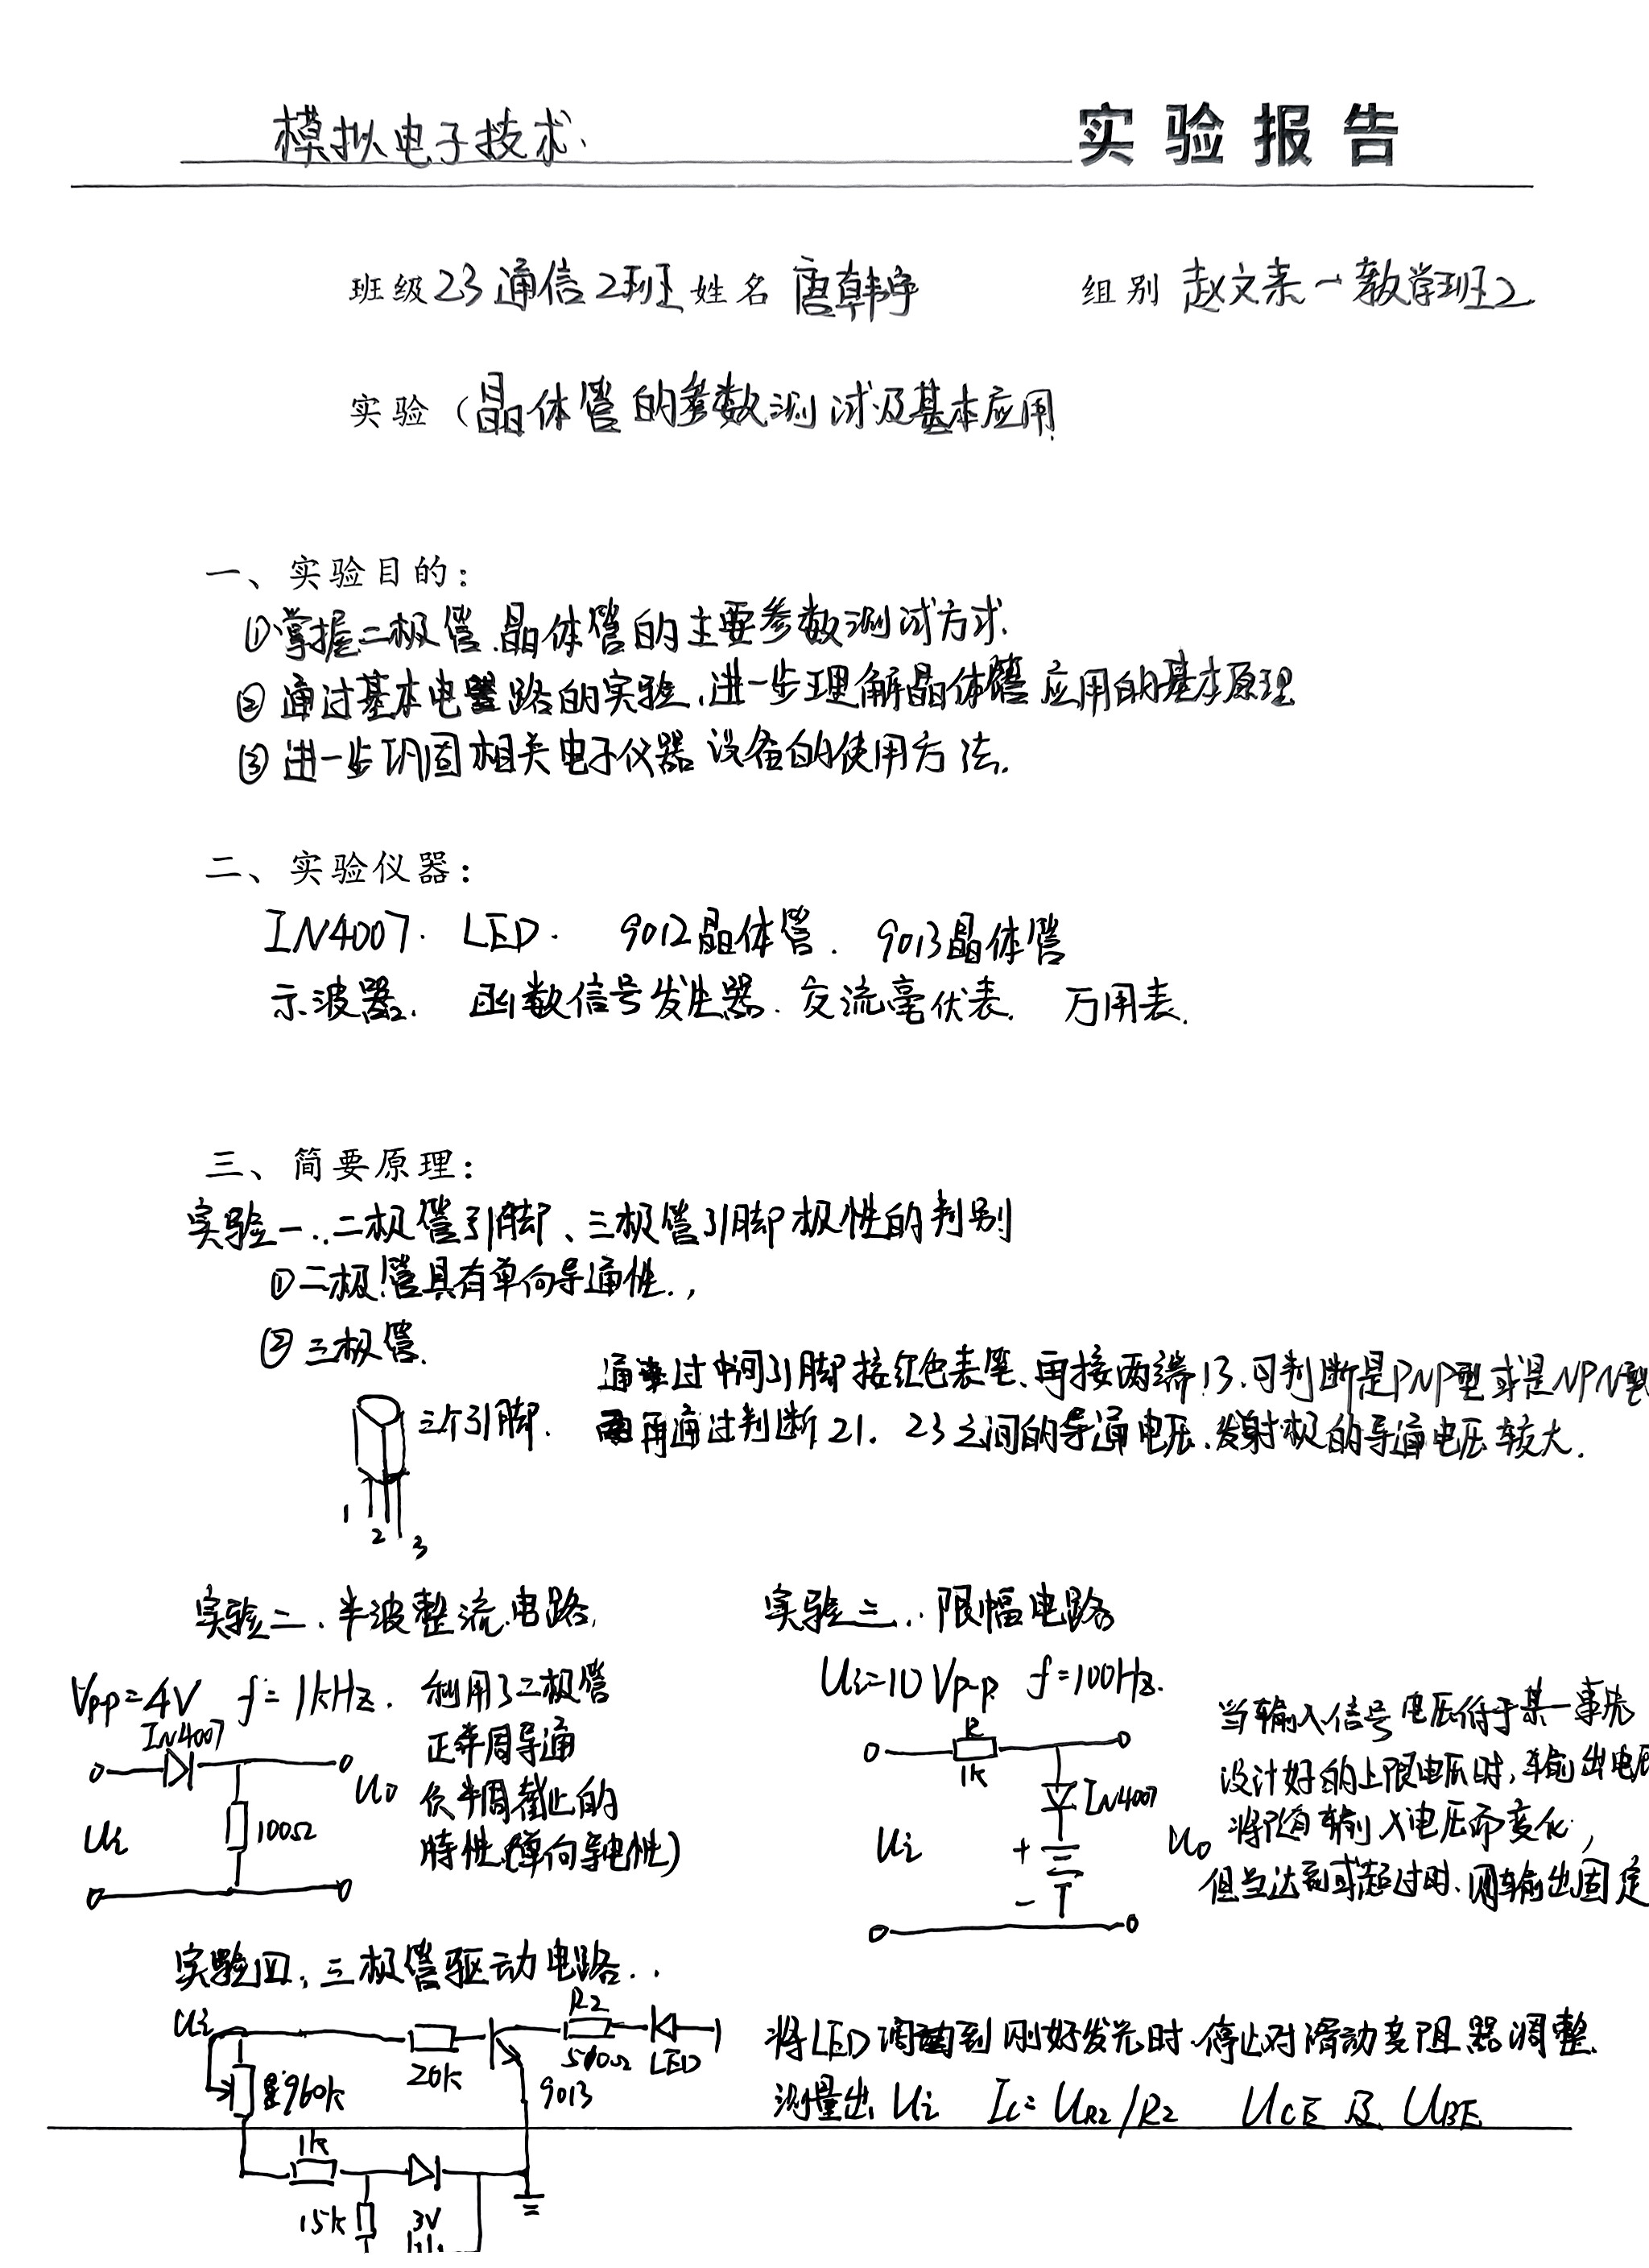 模拟电子技术. 实验报告
班级 23通信2班 姓名 唐韩宇 组别 赵文来一教学班2
实验(晶体管的参数测试及基本应用
一、实验目的:
①掌握二极管.晶体管的主要参数测试方式.
② 通过基本电路的实验,进一步理解晶体管应用的基本原理
③ 进一步巩固相关电子仪器设备的使用方法.
二、实验仪器:
IN4007. LED. 9012晶体管. 9013晶体管
示波器. 函数信号发生器. 交流毫伏表. 万用表.
三、简要原理:
实验一..二极管引脚、三极管引脚极性的判别
①二极管具有单向导通性.,
② 三极管.
通过中间引脚接红色表笔、再接两端13.可判断是PNP型或是NPN型
三个引脚. 再通过判断21. 23之间的导通电压.发射极的导通电压较大.
1
2
3
实验二.半波整流电路,
Vp-p=4V f=1kHz.
利用了二极管
正半周导通
负半周截止的
特性(单向导电性)
IN4007
Ui
100Ω
Uo
实验三..限幅电路
Ui=10Vp-p f=100Hz.
R
1k
IN4007
Ui
+
-
Uo
当输入信号电压低于某一事先
设计好的上限电压时,输出电压
将随输入电压而变化,
但当达到或超过时、则输出固定
实验四、三极管驱动电路..
Ui
960k
20k
9013
R2
510Ω
LED
1k
15k
3V
将LED调到刚好发光时.停止对滑动变阻器调整.
测量出 Ui Ic=UR2/R2 UCE 及 UBE